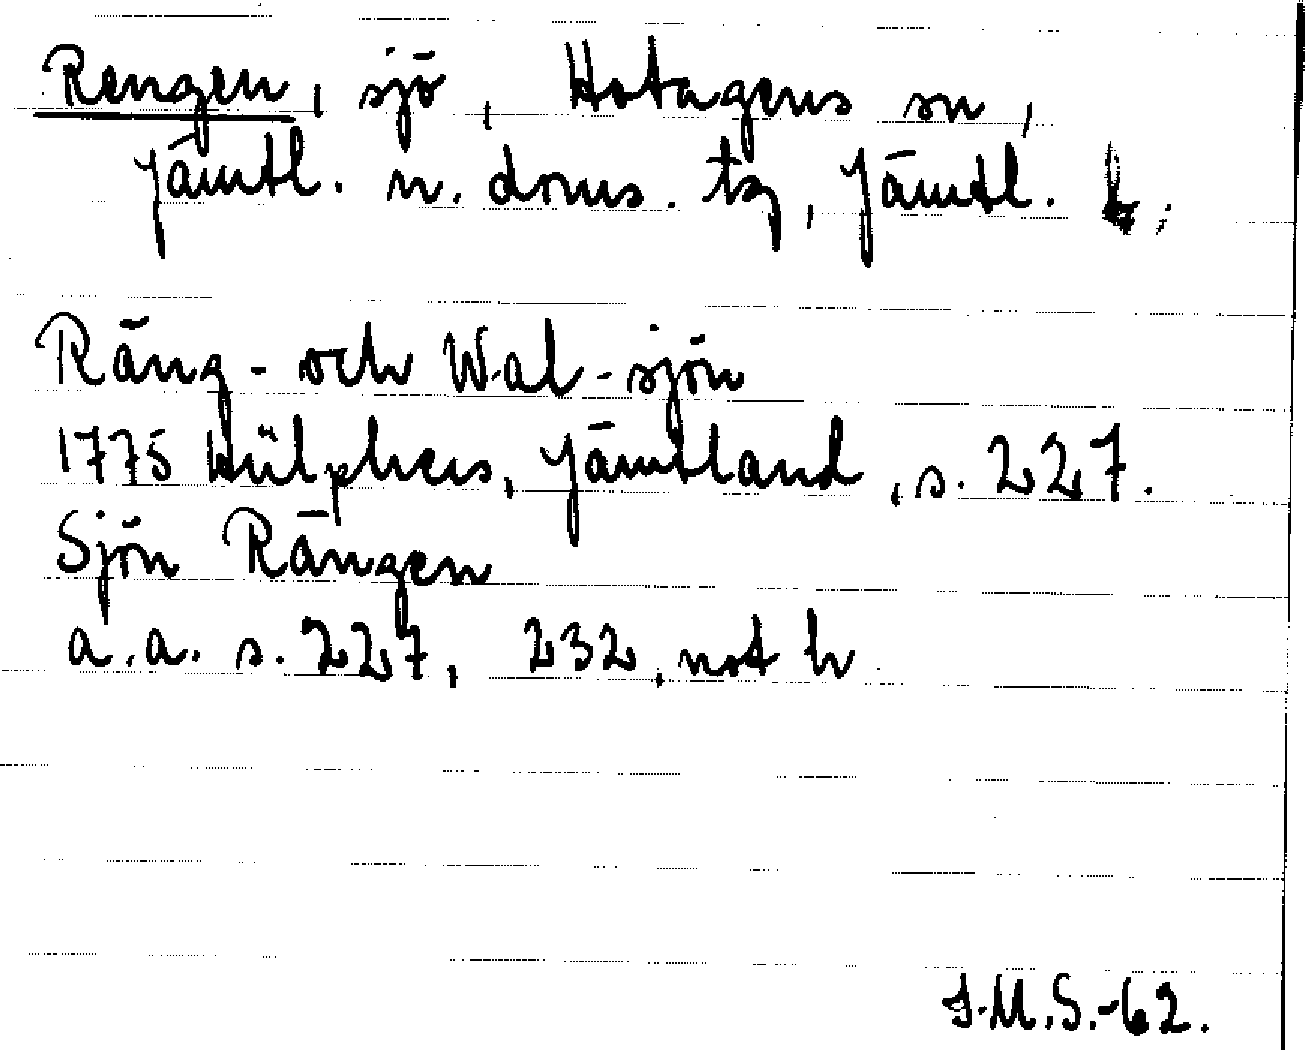 Rengen, sjö, Hotagens sn,
Jämtl. n. doms. tg, Jämtl. l.;
Räng- och Wal-sjön
1775 Hülphers, Jämtland, s. 227.
Sjön Rängen
a.a. s. 227, 232, not h
J.M.S.-62.